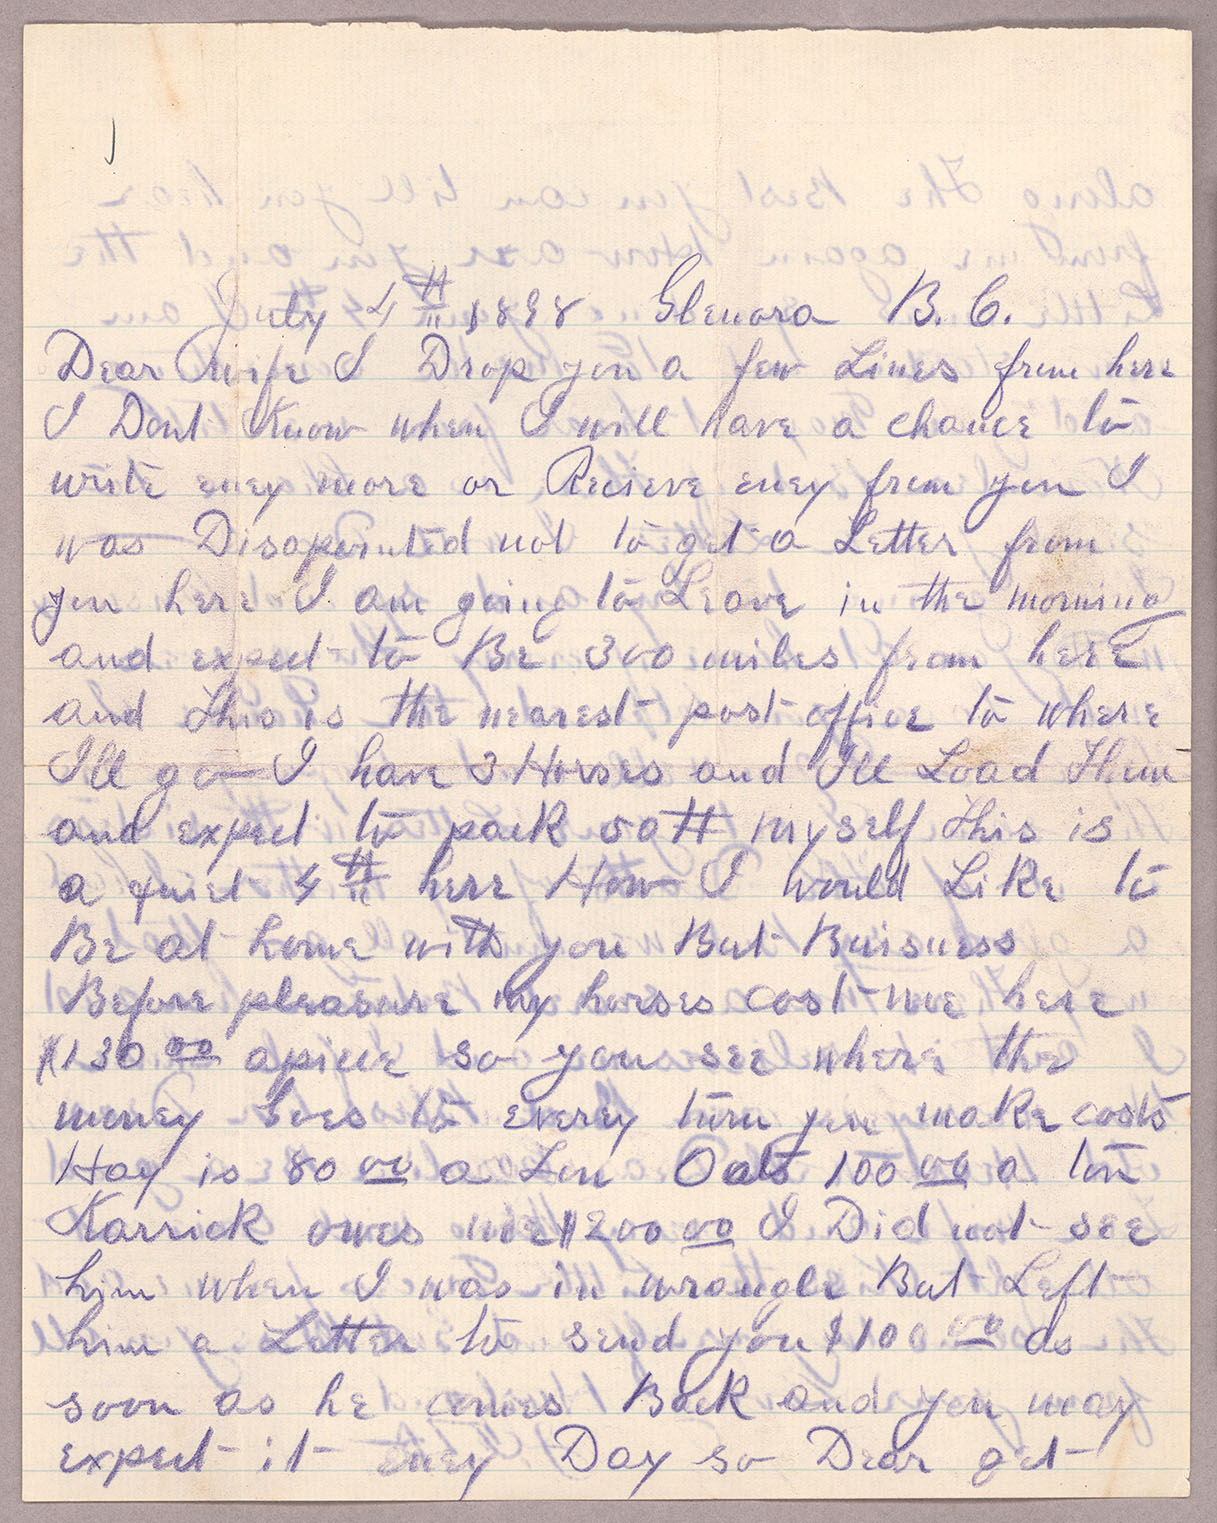 July 4th 1898 Glenora B. C.
Dear wife I Drop you a few Lines from here
I Dont Know when I will have a chance to
write eney more or Recieve eney from you I
was Disapointed not to get a Letter from
you here I am going to Leave in the morning
and expect to Be 300 miles from here
and this is the nearest post office to where
Ill go I have 3 Horses and Ill Load Them
and expect to pack 50 # myself This is
a quiet 4th here How I would Like to
Be at home with you But Buisness
Before pleasure my horses cost me here
$130 00 apiece so you see where the
money Goes to every turn you make costs
Hay is 80 00 a Ton Oats 100 00 a ton
Karrick owes me $200 00 I Did not see
him when I was in wrangle But Left
him a Letter to send you $100 00 as
soon as he comes Back and you may
expect it eney Day so Dear get